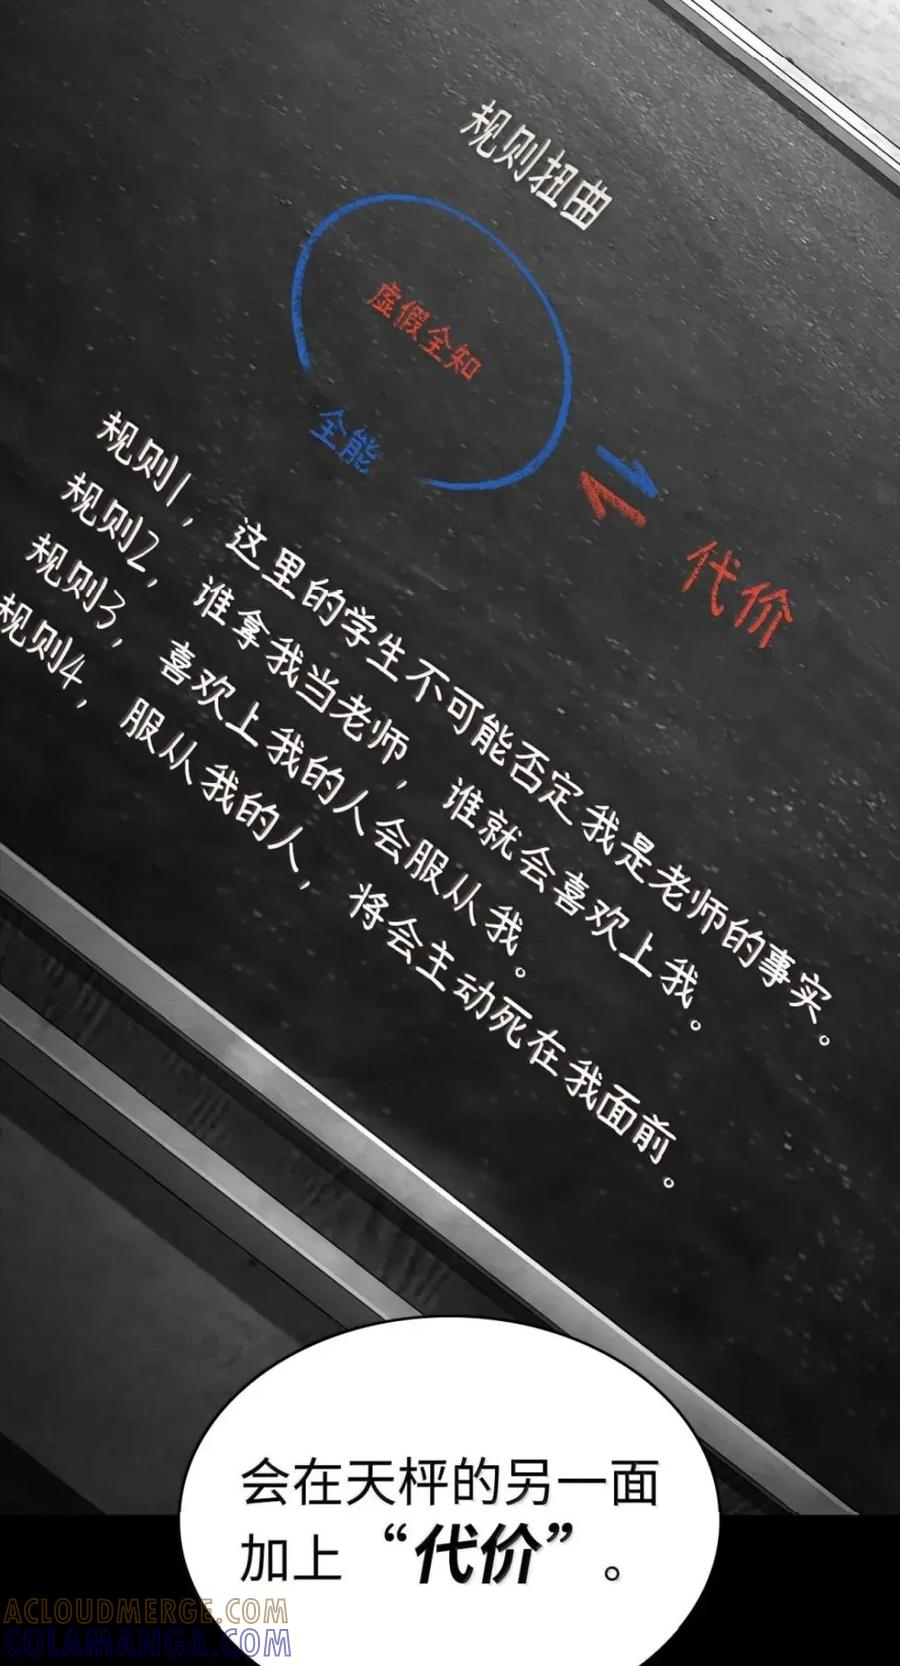 规则扭曲
虚假全知
全能
代价
规则1，这里的学生不可能否定我是老师的事实。
规则2，谁拿我当老师，谁就会喜欢上我。
规则3，喜欢上我的人会服从我。
规则4，服从我的人，将会主动死在我面前。
会在天枰的另一面
加上“代价”。
ACLOUDMERGE.COM
COLAMANGA.COM